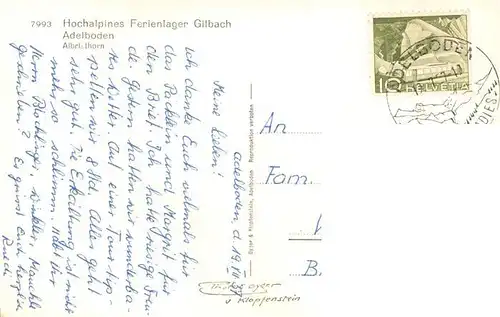 7993 Hochalpines Ferienlager Gilbach
Adelboden
Albristhorn
Adelboden, d. 19.
Meine Lieben!
Ich danke Euch vielmals für
das Päcklein und Margrit für
den Brief. Ich hatte riesige Freu-
de. Gestern hatten wir wunderba-
res Wetter. Auf einer Tour
wir 8 Std. Alles geht
sehr gut. Die Erkältung ist nicht
mehr so schlimm. Habt Ihr
Herrn Blochlinger, Winkler,
geschrieben? Es grüsst Euch herzlich
Ruedi
An
Fam.
B.
Gyger & Klopfenstein, Adelboden Reproduktion verboten
Gyger
v Klopfenstein
10
HELVETIA
ADELBODEN